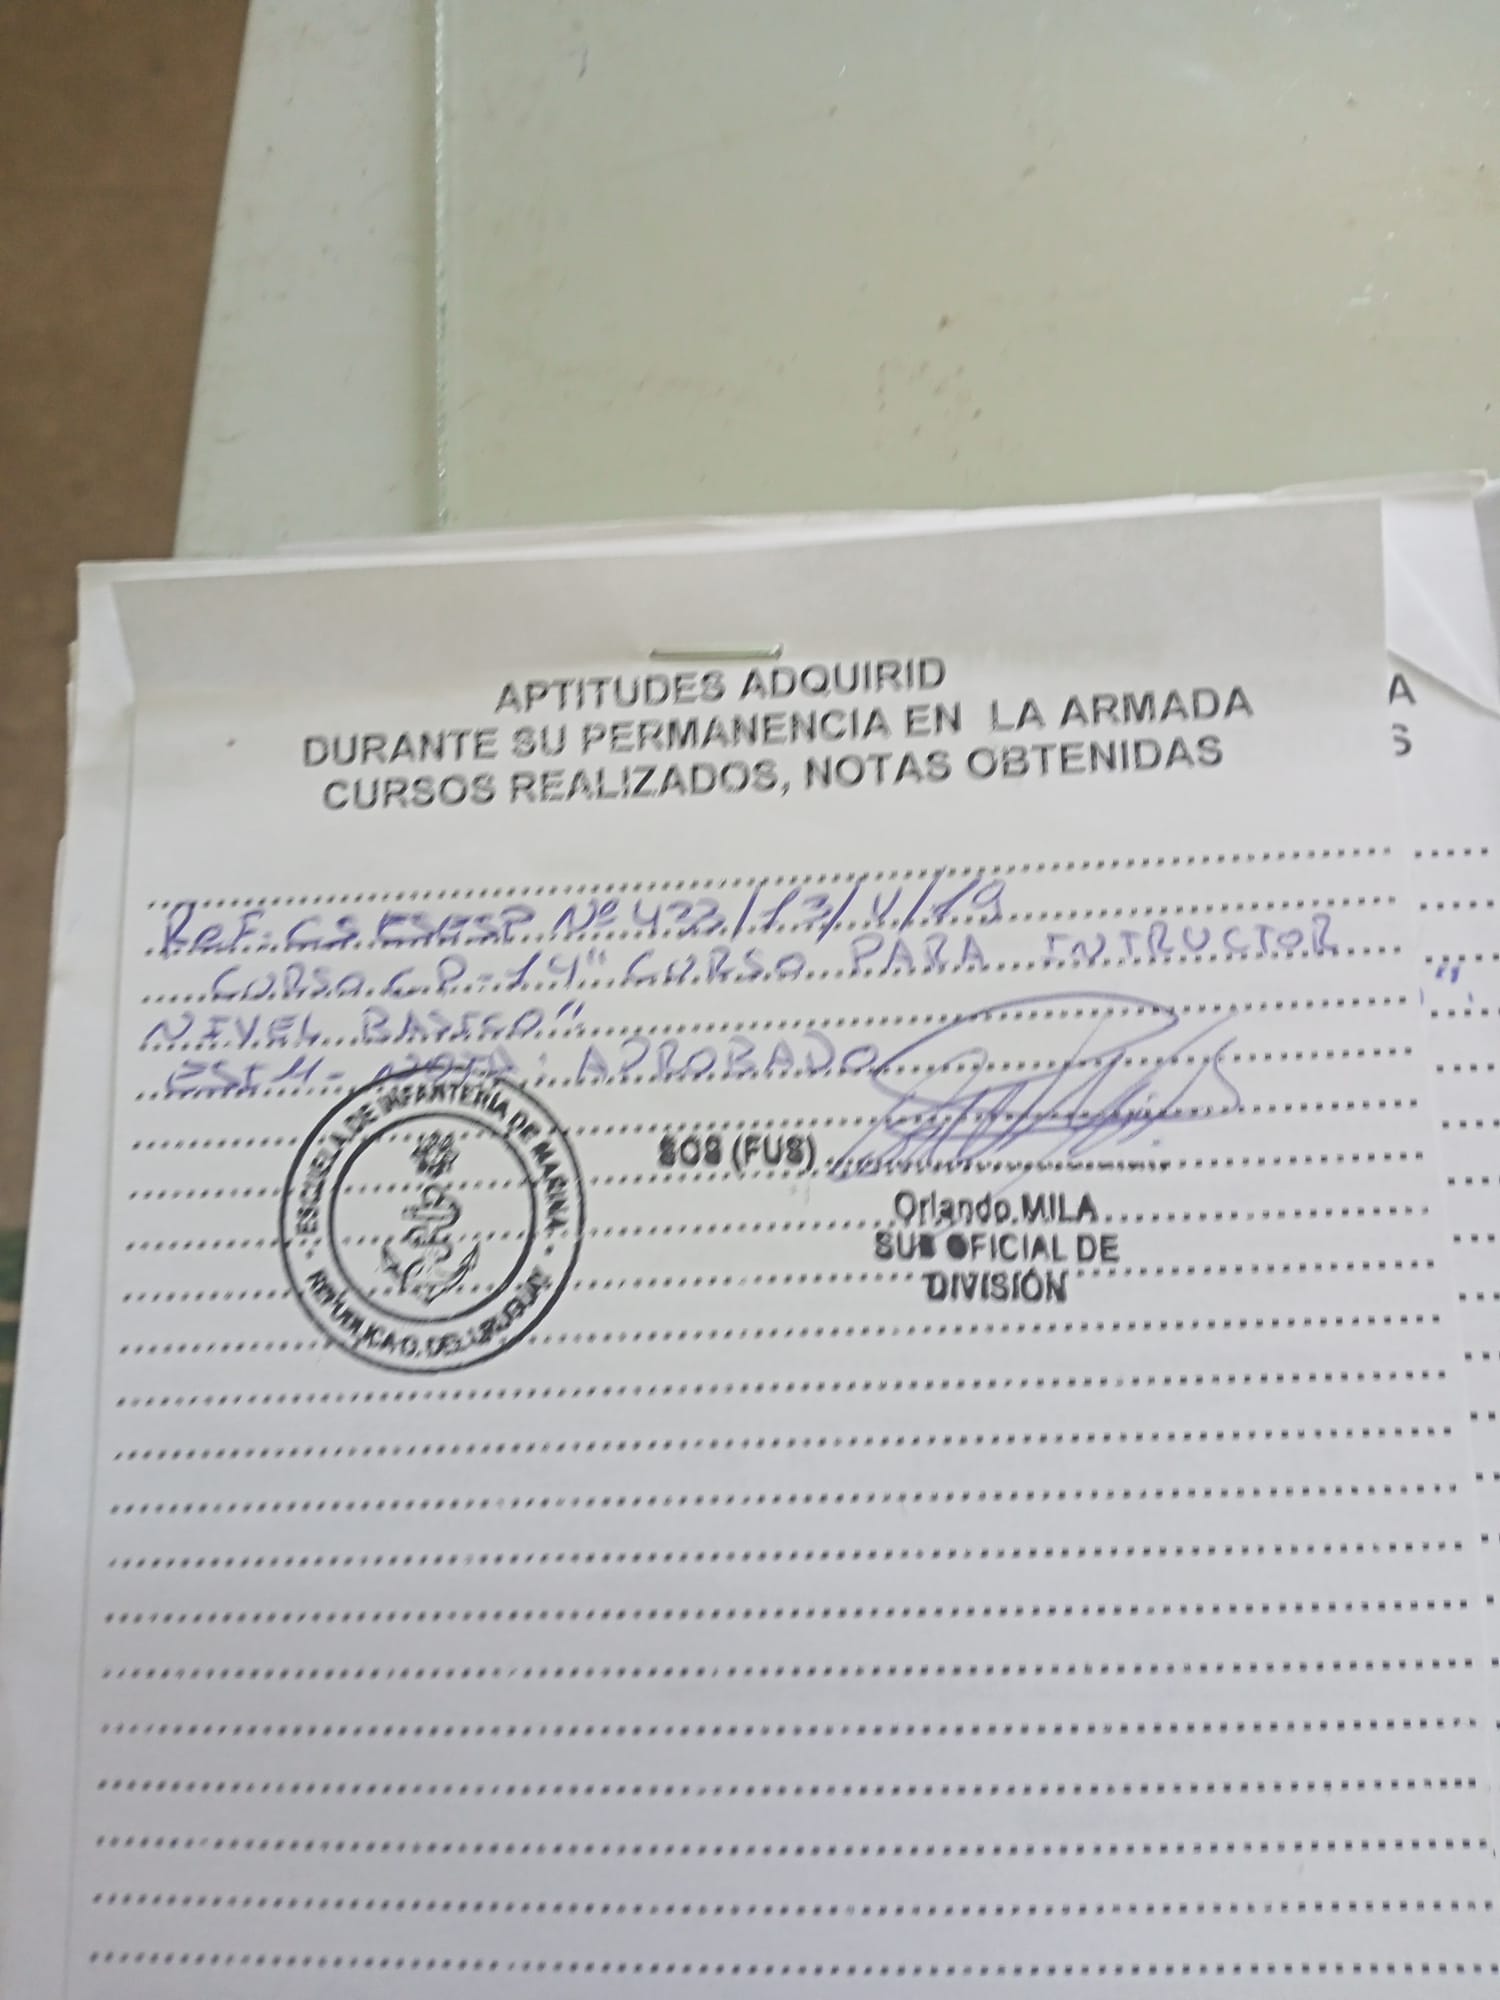 APTITUDES ADQUIRID
DURANTE SU PERMANENCIA EN LA ARMADA
CURSOS REALIZADOS, NOTAS OBTENIDAS
A
S
Ref. CS ESESP Nº 433/13/V/19
CURSO C.P-14" CURSO PARA INTRUCTOR
NIVEL BASICO"
ESIM - NOTA: APROBADO
ESCUELA DE INFANTERIA DE MARINA
REPUBLICA O. DEL URUGUAY
SOS (FUS)
Orlando MILA
SUB OFICIAL DE
DIVISIÓN